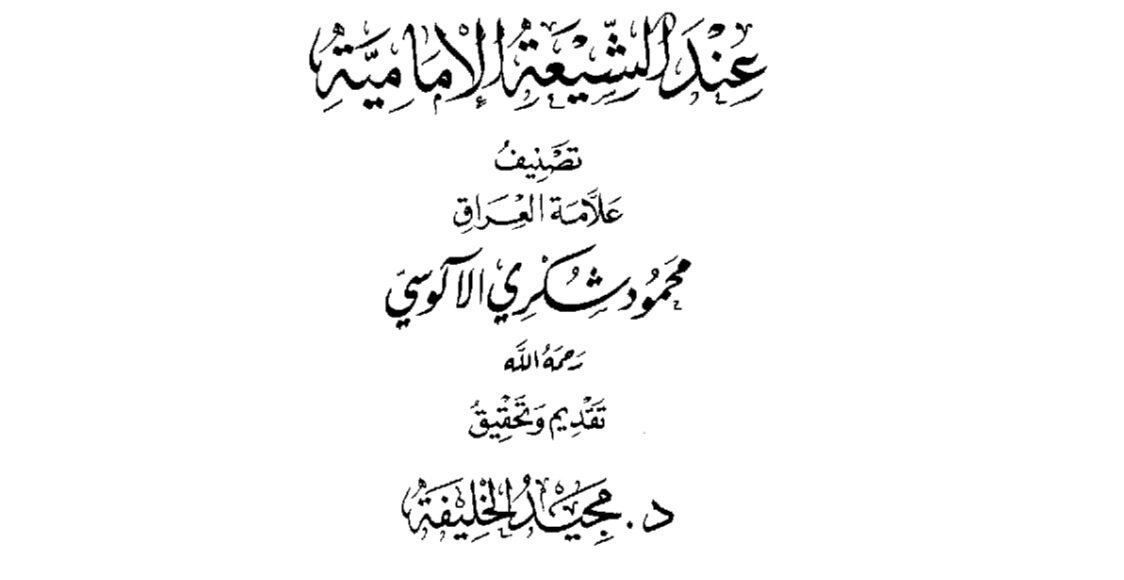 عِنْدَ الشِّيْعَةِ الإِمَامِيَّةِ
تَصْنِيفُ
عَلَّامَة العِرَاقِ
مَحْمُود شُكْرِي الآلوسِيّ
رَحِمَهُ اللَّه
تَقْدِيم وَتَحْقِيقُ
د. مَجِيْدُ الخَلِيفَةُ